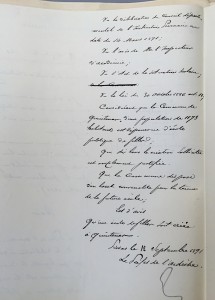 De la délibération du Conseil départe-
mental de l'Instruction Primaire en
date du 20 Mars 1891,
De l'avis de M. l'Inspecteur
d'Académie;
De l'Art de la
De la loi du 30 octobre 1886 art.
Considérant que la Commune de
Quintenas, d'une population de 1193
habitants est dépourvue d'école
publique de filles;
Que dès lors la création sollicitée
est amplement justifiée
Que la Commune dispose
d'un local convenable pour la tenue
de la future école;
Est d'avis
qu'une école de filles soit créée
à Quintenas.
Privas le 12 Septembre 1891
Le Préfet de l'Ardèche